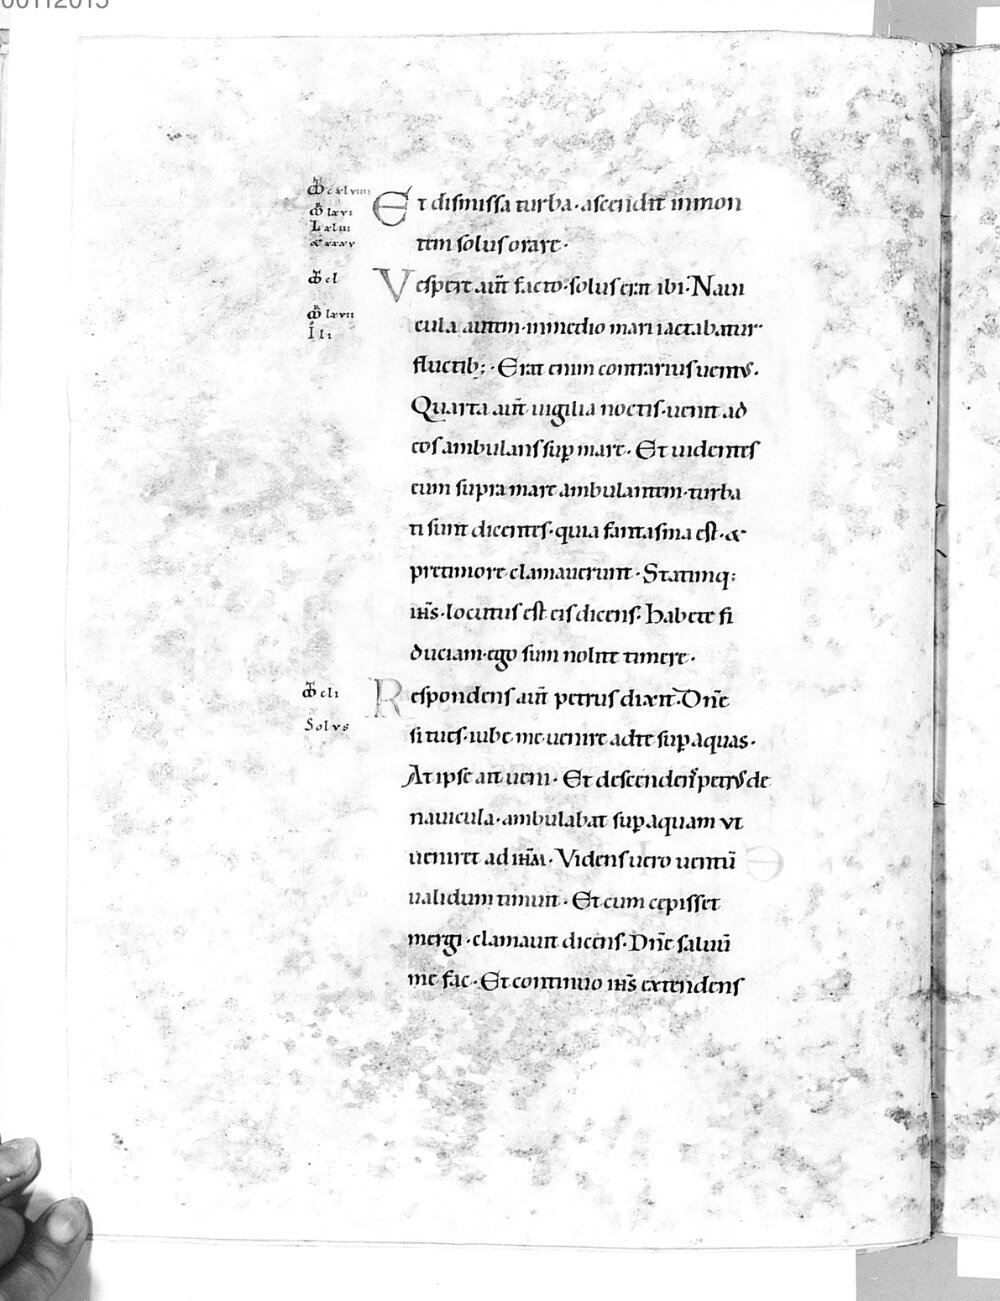 Et dismissa turba · ascendit inmon
tem solus orare ·
Vespere aut̄ facto · solus erat ibi · Naui
cula autem · inmedio mari iactabatur
fluctib; · Erat enim contrarius uentus ·
Quarta aut̄ uigilia noctis · uenit ad
eos ambulans sup̱ mare · Et uidentes
eum supra mare ambulantem · turba
ti sunt dicentes · quia fantasma est · &
pretimore clamauerunt · Statimq;
ih̄s · locutus est eis dicens · Habete fi
duciam · ego sum nolite timere ·
Respondens aut̄ petrus dixit · Dn̄e
si tu es · iube me uenire adte sup̱ aquas ·
At ipse ait ueni · Et descendens petrus de
nauicula · ambulabat sup̱ aquam vt
ueniret ad ih̄m · Videns uero uentū
ualidum timuit · Et cum cepisset
mergi · clamauit dicens · Dn̄e saluū
me fac · Et continuo ih̄s extendens
cxlviiii
lxvi
L xliii
xxxv
cl
lxvii
I li
cli
Solus